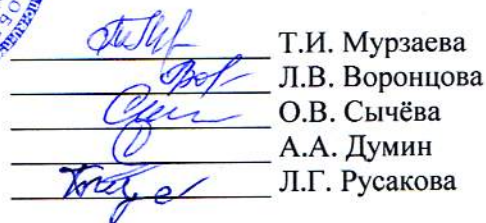 Т.И. Мурзаева
Л.В. Воронцова
О.В. Сычёва
А.А. Думин
Л.Г. Русакова